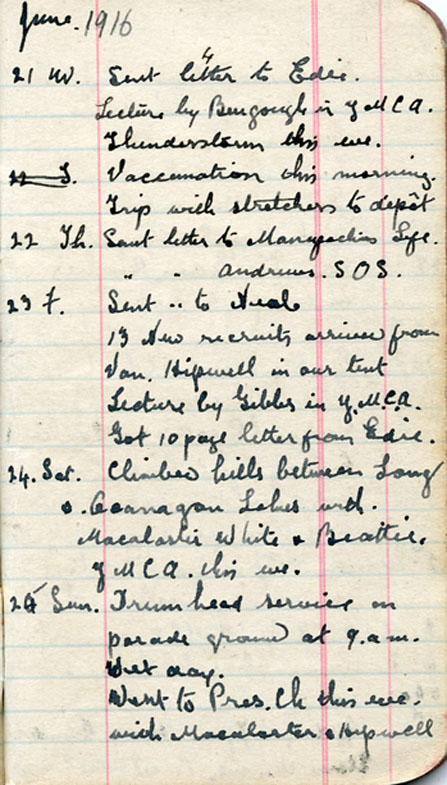 June. 1916
21 W. Sent letter to Edie.
Lecture by Bengough in Y M C A.
Thunderstorm this eve.
22 T. Vaccination this morning.
Trip with stretchers to depôt
22 Th. Sent letter to Life.
" " Andrews. S O S.
23 F. Sent " to Neal
13 New recruits arrived from
Van. Hipwell in our tent
Lecture by Gibbs in Y.M.C.A.
Got 10 page letter from Edie.
24. Sat. Climbed hills between Long
& Okanagan Lakes with
Macalaster White & Beattie.
Y M C A. this eve.
25 Sun. Drumhead service on
parade ground at 9. a.m.
Wet day.
Went to Pres. Ch this eve.
with Macalaster & Hipwell